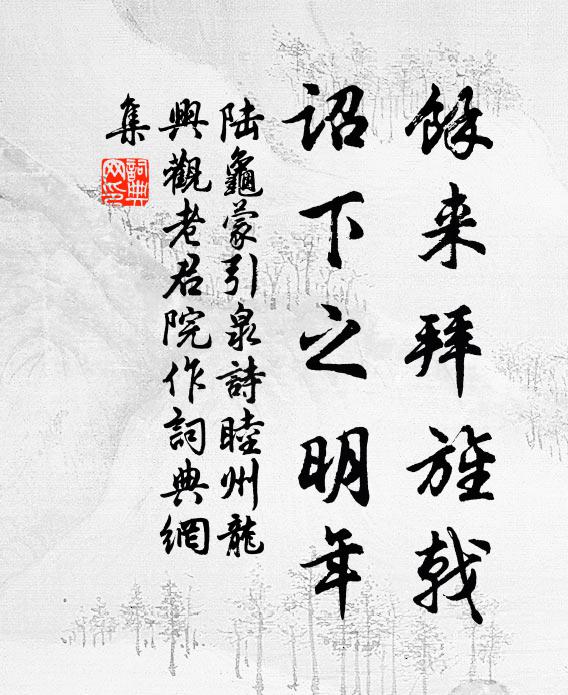 餘来拜旌戟
詔下之明年
陸龜蒙引泉詩睦州龍
興觀老君院作詞典網
集
詞典網印